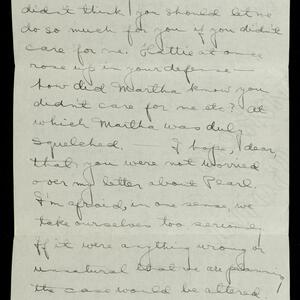 didn't think you should let me
do so much for you if you didn't
care for me. Hettie at once
rose up in your defense —
how did Martha know you
didn't care for me etc? at
which Martha was duly
squelched. — I hope, dear,
that you were not worried
over my letter about Pearl.
I'm afraid, in one sense, we
take ourselves too seriously
if it were anything wrong or
unnatural that we are planning
the case would be altered.